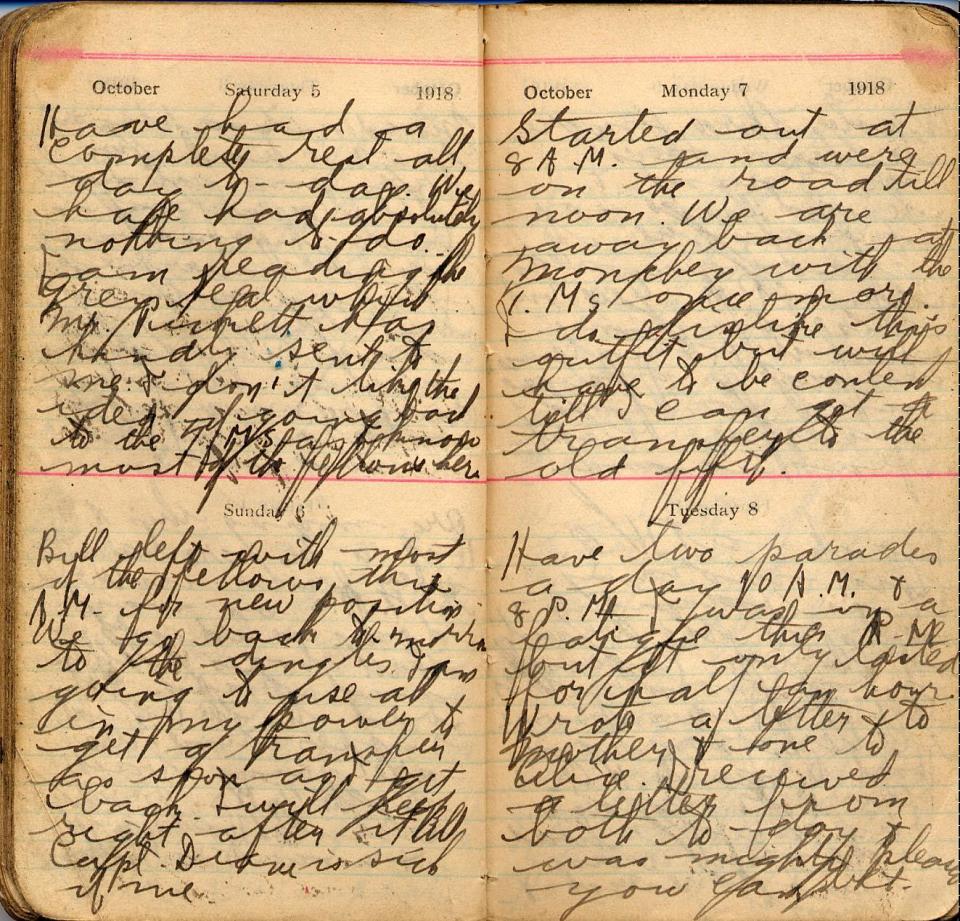 October Saturday 5 1918
Have had a
complete rest all
day to-day. We
have had absolutely
nothing to do.
I am reading the
grey seal which
Mr. has
sent to
me. I don't like the
idea of going back
to the T.M.S as I know
most of the fellows here.
Sunday 6
Bill left with most
of the fellows this
A.M. for new position.
We go back
to the I am
going to use all
in my power to
get a transfer
as soon as I get
back. I will keep
right after it till
Capt. is sick
of me
October Monday 7 1918
Started out at
8 A.M. and were
on the road till
noon. We are
away back at
with the
T.Ms once more.
I do dislike this
outfit but will
have to be content
till I can get a
transfer to the
old fifty.
Tuesday 8
Have two parades
a day 10 A.M. &
8 P.M. I was on a
fatigue this P.M.
but it only lasted
for half an hour.
Wrote a letter to
Mother & one to
Olive. I received
a letter from
both to-day &
was mighty pleased
you can bet.